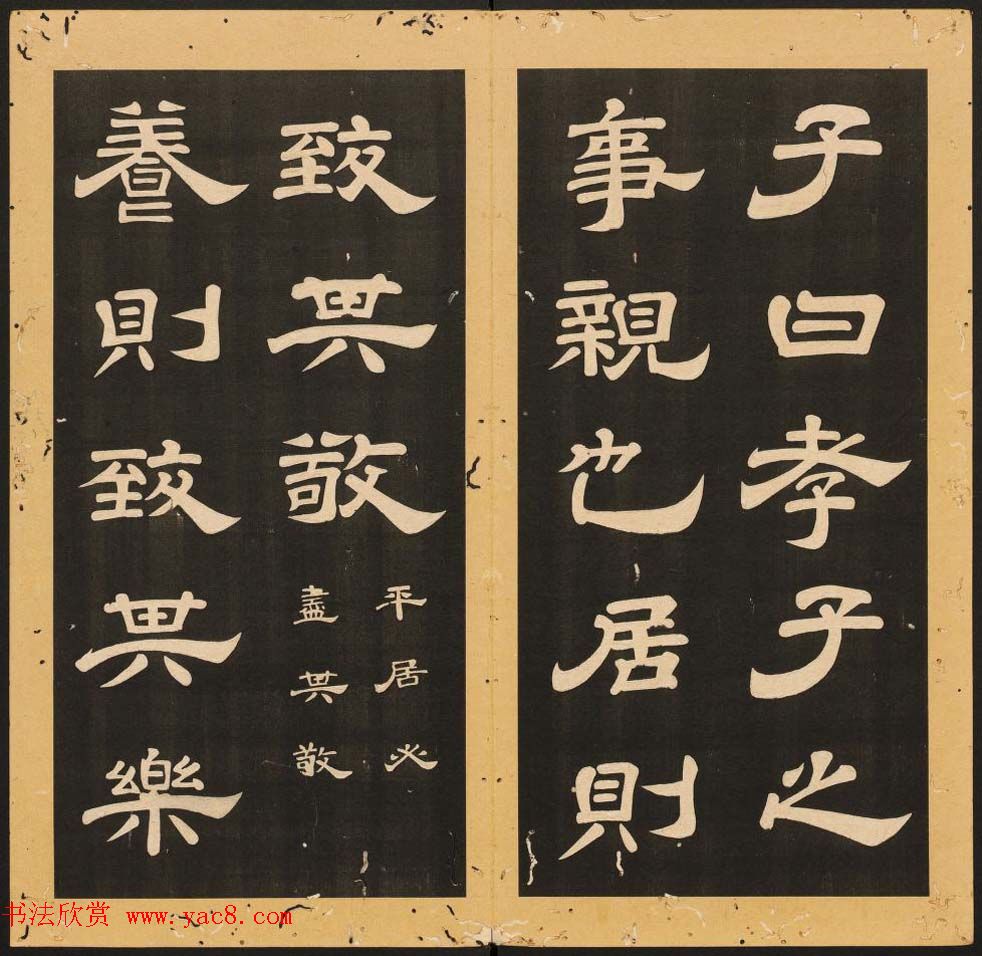 子曰孝子之
事親也居則
致其敬
平居必
盡其敬
養則致其樂
书法欣赏 www.yac8.com